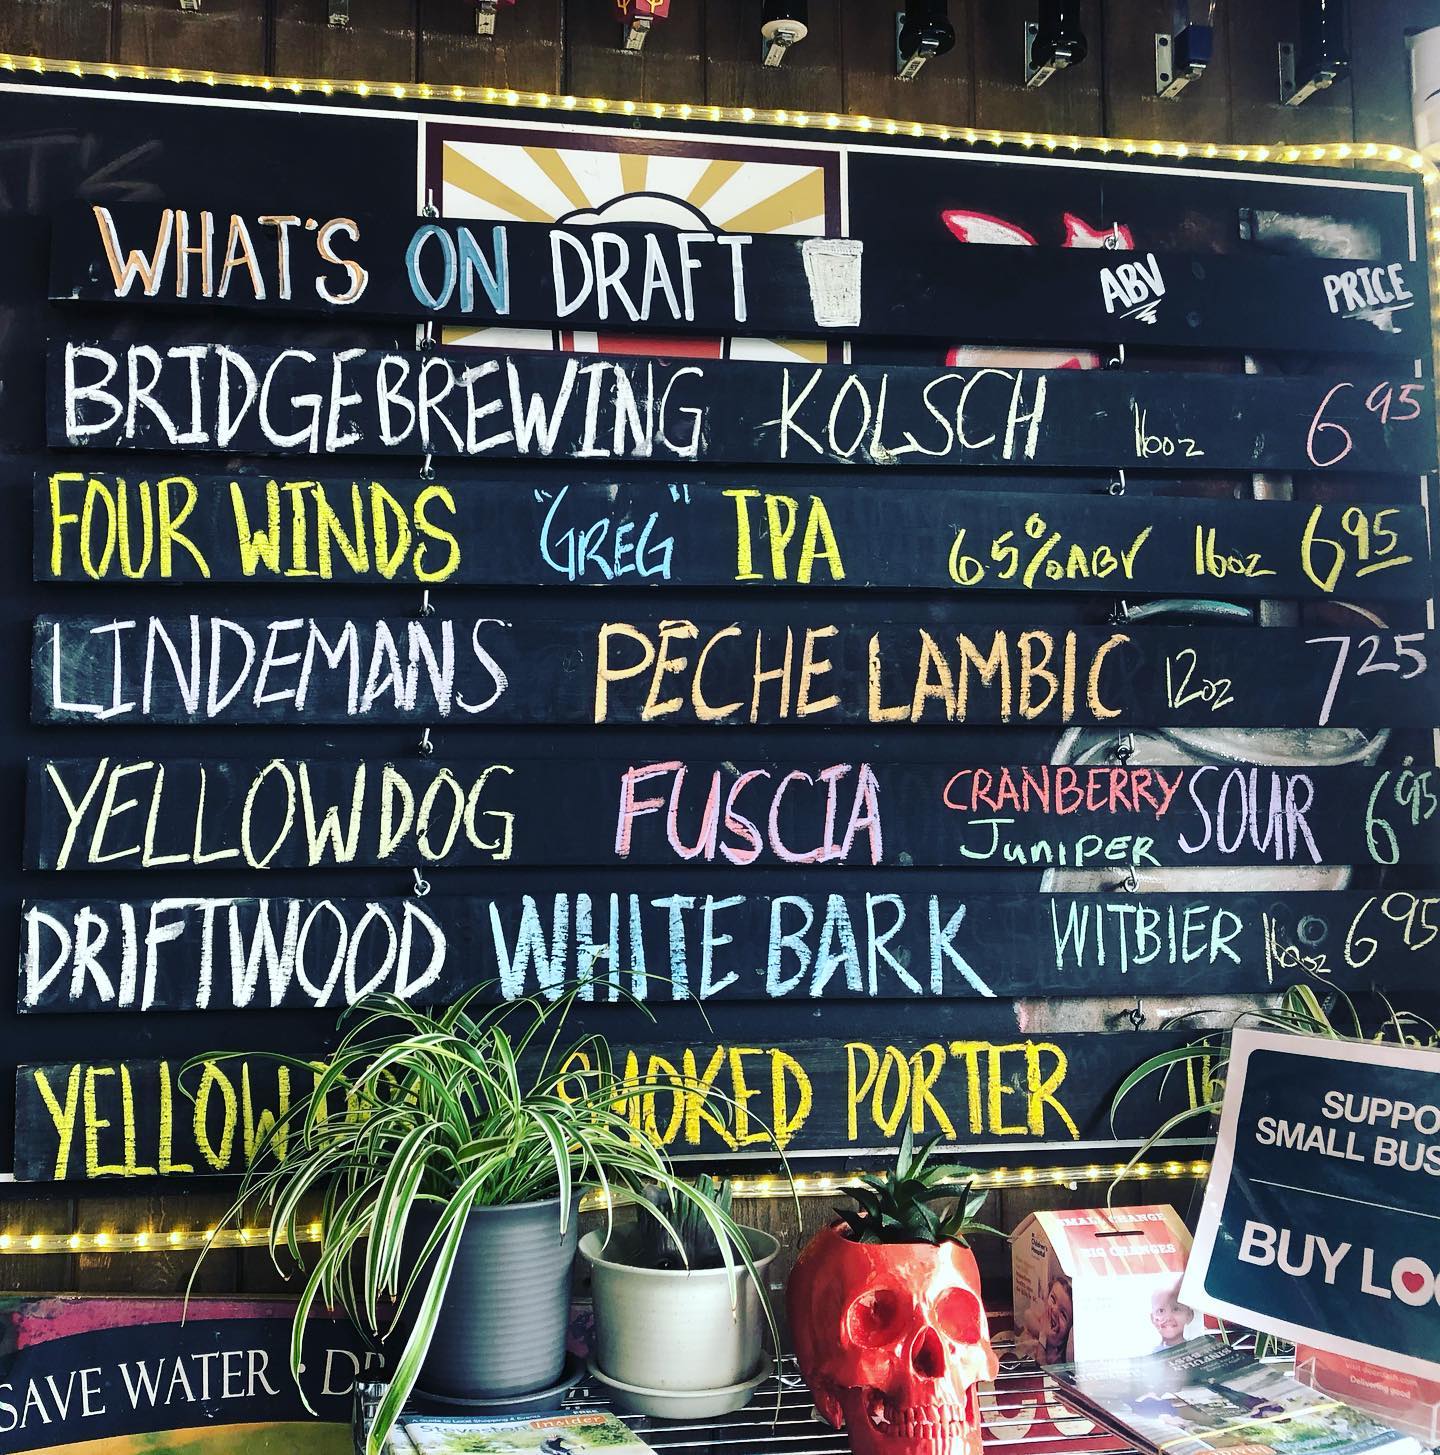 WHAT'S ON DRAFT ABV PRICE
BRIDGEBREWING KOLSCH 16oz 6 95
FOUR WINDS "GREG" IPA 6.5% ABV 16oz 6 95
LINDEMANS PECHE LAMBIC 12oz 7 25
YELLOWDOG FUSCIA CRANBERRY JUNIPER SOUR 6 95
DRIFTWOOD WHITE BARK WITBIER 16oz 6 95
YELLOW SMOKED PORTER
SUPPO
SMALL BUS
BUY LO
SMALL CHANGE
BIG CHANGES
SAVE WATER
A Guide to Local Shopping & Events
Steveston Insider
FREE
Delivering good